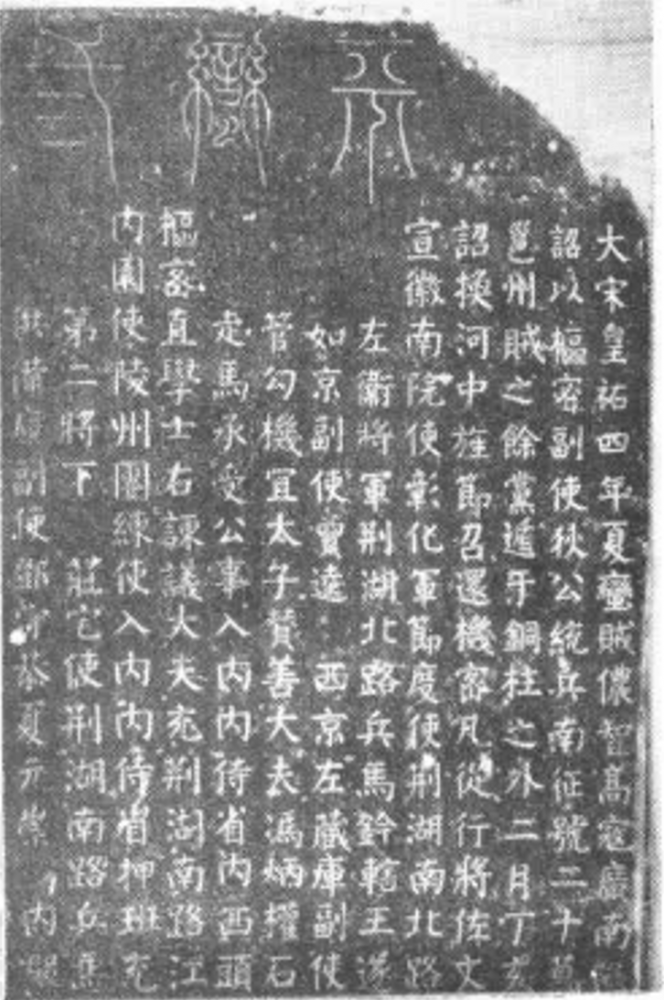 平蠻三
大宋皇祐四年夏蠻賊儂智高寇廣南
詔以樞密副使狄公統兵南征號二十萬
邕州賊之餘黨遁于銅柱之外二月丁亥
詔換河中旌節召還機密凡從行將佐文
宣徽南院使彰化軍節度使荆湖南北路
左衛將軍荆湖北路兵馬鈐轄王遂
如京副使賈逵 西京左藏庫副使
管勾機宜太子贊善大夫馮炳權石
走馬承受公事入内内侍省内西頭
樞密直學士右諫議大夫充荆湖南路江
内園使陵州團練使入内内侍省押班充
第二將下 莊宅使荆湖南路兵馬
供備庫副使鄭守恭夏元崇 内殿